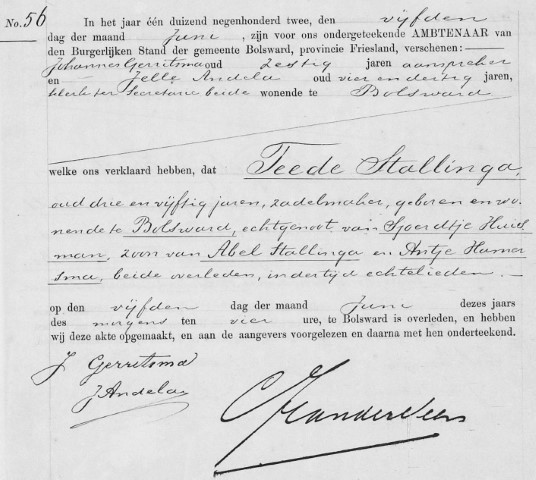 No. 56 In het jaar één duizend negenhonderd twee, den vijfden
dag der maand Juni, zijn voor ons ondergeteekende AMBTENAAR van
den Burgerlijken Stand der gemeente Bolsward, provincie Friesland, verschenen:
Johannes Gerritsma oud zestig jaren aanspreker
en Jelle Andela oud vier en dertig jaren,
klerk ter Secretarie beide wonende te Bolsward
welke ons verklaard hebben, dat Teede Stallinga,
oud drie en vijftig jaren, zadelmaker, geboren en wo-
nende te Bolsward, echtgenoot van Sjoerdtje Huis
man, zoon van Abel Stallinga en Antje Hamer
sma, beide overleden, indertijd echtelieden. —
op den vijfden dag der maand Juni dezes jaars
des morgens ten vier ure, te Bolsward is overleden, en hebben
wij deze akte opgemaakt, en aan de aangevers voorgelezen en daarna met hen onderteekend.
J Gerritsma
J Andela